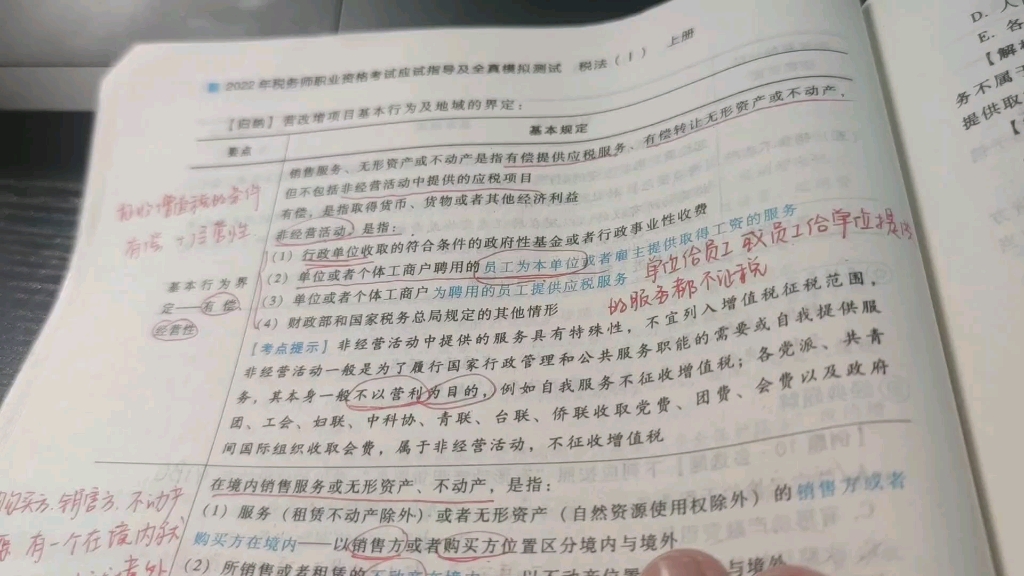 2022年税务师职业资格考试应试指导及全真模拟测试 税法(Ⅰ) 上册
【归纳】营改增项目基本行为及地域的界定：
要点
基本规定
销售服务、无形资产或不动产是指有偿提供应税服务、有偿转让无形资产或不动产，
但不包括非经营活动中提供的应税项目
有偿，是指取得货币、货物或者其他经济利益
非经营活动 是指：
(1) 行政单位收取的符合条件的政府性基金或者行政事业性收费
(2) 单位或者个体工商户聘用的员工为本单位或者雇主提供取得工资的服务
(3) 单位或者个体工商户为聘用的员工提供应税服务
(4) 财政部和国家税务总局规定的其他情形
单位给员工或员工给单位提供
的服务都不征税
基本行为界
定——有偿、
经营性
有偿
【考点提示】非经营活动中提供的服务具有特殊性，不宜列入增值税征税范围，
非经营活动一般是为了履行国家行政管理和公共服务职能的需要或自我提供服
务，其本身一般不以营利为目的，例如自我服务不征收增值税；各党派、共青
团、工会、妇联、中科协、青联、台联、侨联收取党费、团费、会费以及政府
间国际组织收取会费，属于非经营活动，不征收增值税
购买方.销售方.不动产
有一个在境内就
在境内销售服务或无形资产、不动产，是指：
(1) 服务（租赁不动产除外）或者无形资产（自然资源使用权除外）的销售方或者
购买方在境内——以销售方或者购买方位置区分境内与境外
(2) 所销售或者租赁的不动产在境内
以不动产位置
与境外
D. 人
E. 各
【解
务不属于
提供取